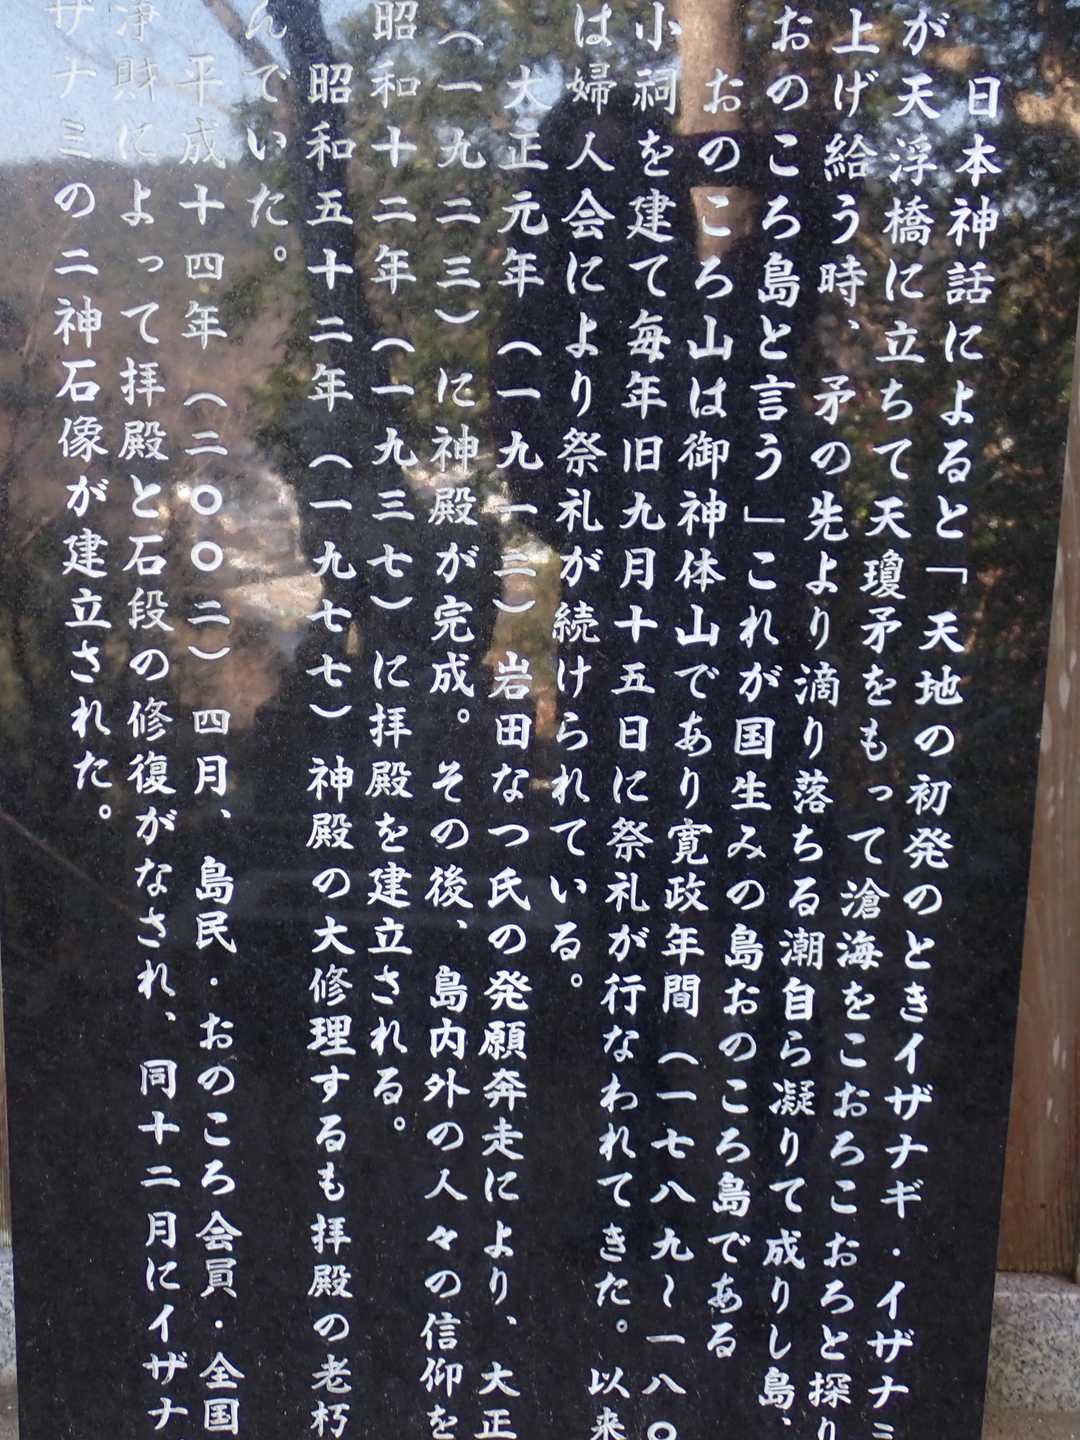 日本神話によると「天地の初発のときイザナギ・イザナミ
が天浮橋に立ちて天瓊矛をもって滄海をこおろこおろと探り
上げ給う時、矛の先より滴り落ちる潮自ら凝りて成りし島、
おのころ島と言う」これが国生みの島おのころ島である
おのころ山は御神体山であり寛政年間(一七八九~一八〇
小祠を建て毎年旧九月十五日に祭礼が行なわれてきた。以来
は婦人会により祭礼が続けられている。
大正元年(一九一三)岩田なつ氏の発願奔走により、大正
(一九二三)に神殿が完成。その後、島内外の人々の信仰を
昭和十二年(一九三七)に拝殿を建立される。
昭和五十二年(一九七七)神殿の大修理するも拝殿の老朽
んでいた。
平成十四年(二〇〇二)四月、島民・おのころ会員・全国
浄財によって拝殿と石段の修復がなされ、同十二月にイザナ
ザナミの二神石像が建立された。